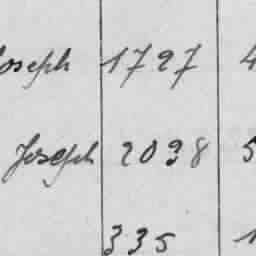 Joseph 1727 4
Joseph 2098 5
335 1